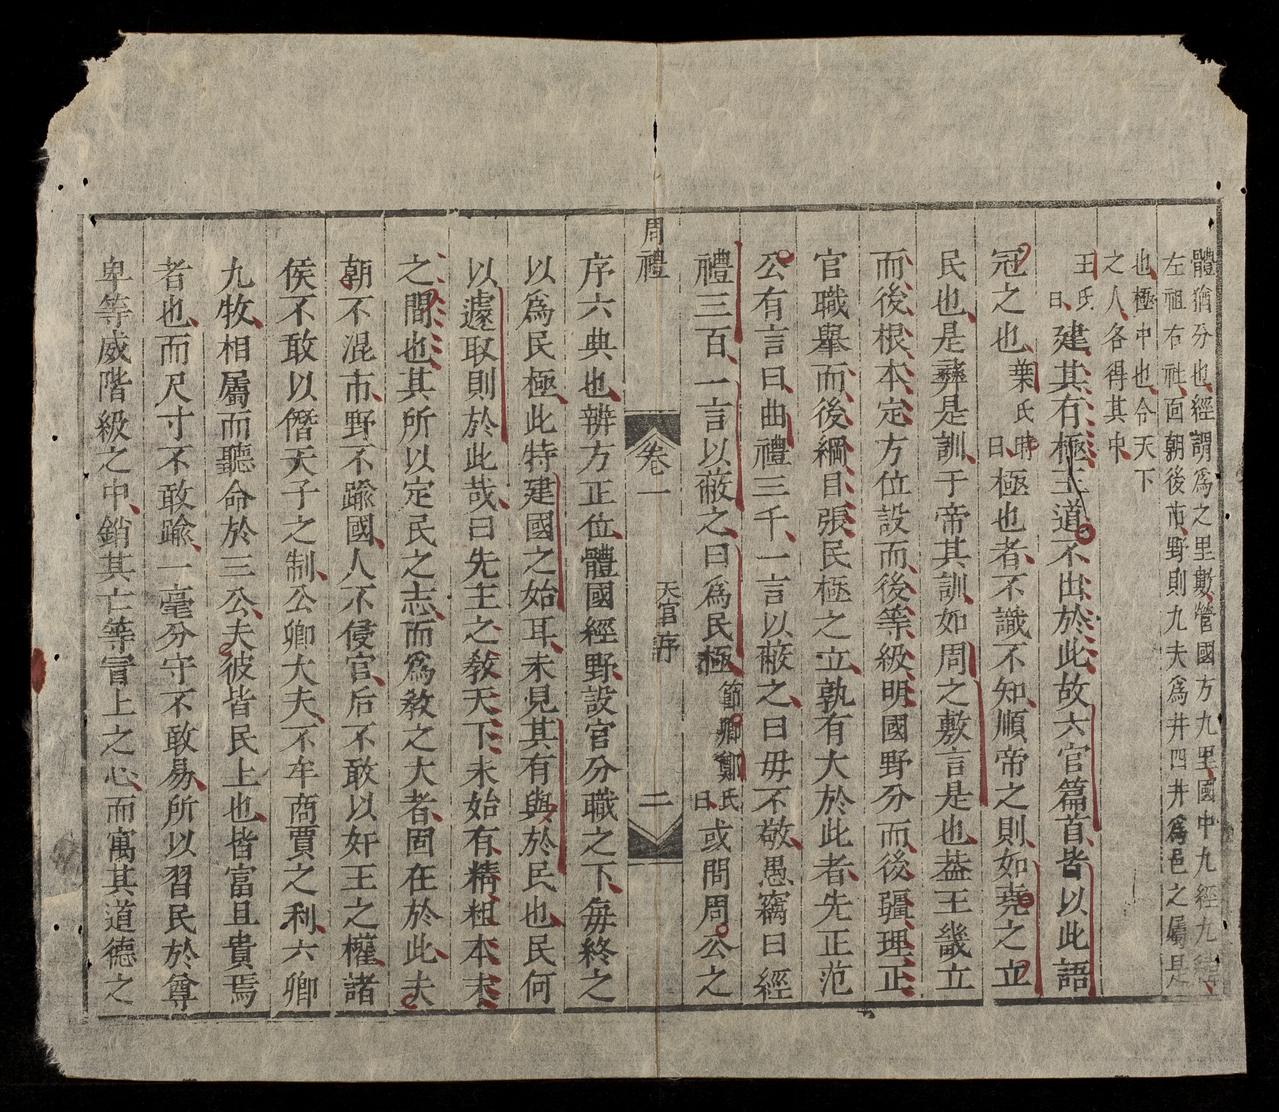 體猶分也經謂爲之里數營國方九里國中九經九緯
左祖右社面朝後市野則九夫爲井四井爲邑之屬是
也極中也令天下
之人各得其中
王氏曰建其有極王道不出於此故六官篇首皆以此語
冠之也葉氏時曰極也者不識不知順帝之則如堯之立
民也是彝是訓于帝其訓如周之敷言是也葢王畿立
而後根本定方位設而後等級明國野分而後疆理正
官職舉而後綱目張民極之立孰有大於此者先正范
公有言曰曲禮三千一言以蔽之曰毋不敬愚竊曰經
禮三百一言以蔽之曰爲民極節卿鄭氏曰或問周公之
周禮
卷一
天官序
二
序六典也辨方正位體國經野設官分職之下每終之
以爲民極此特建國之始耳未見其有與於民也民何
以遽取則於此哉曰先王之敎天下未始有精粗本末
之間也其所以定民之志而爲敎之大者固在於此夫
朝不混市野不踰國人不侵官后不敢以奸王之權諸
侯不敢以僭天子之制公卿大夫不牟商賈之利六卿
九牧相屬而聽命於三公夫彼皆民上也皆富且貴焉
者也而尺寸不敢踰一毫分守不敢易所以習民於尊
卑等威階級之中銷其亡等冒上之心而寓其道德之